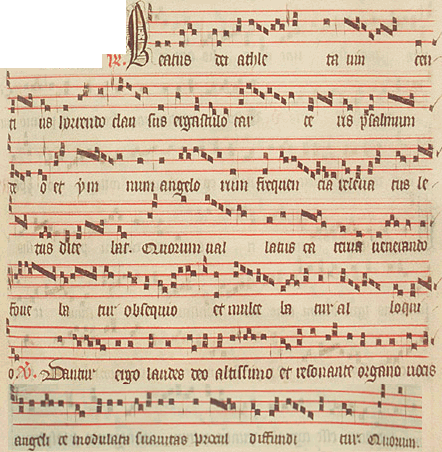 R. Beatus dei athle ta uin cen
ti us horrendo clau sus ergastulo car ce ris psalmum
de o et ym num angelo rum frequen cia releua tus le
tus dice bat. Quorum ual latus ca terua uenerando
foue ba tur obsequio et mulce ba tur al loqui
o. V. Dantur ergo laudes deo altissimo et resonante organo uocis
angeli ce modulata suauitas procul diffundi tur. Quorum.